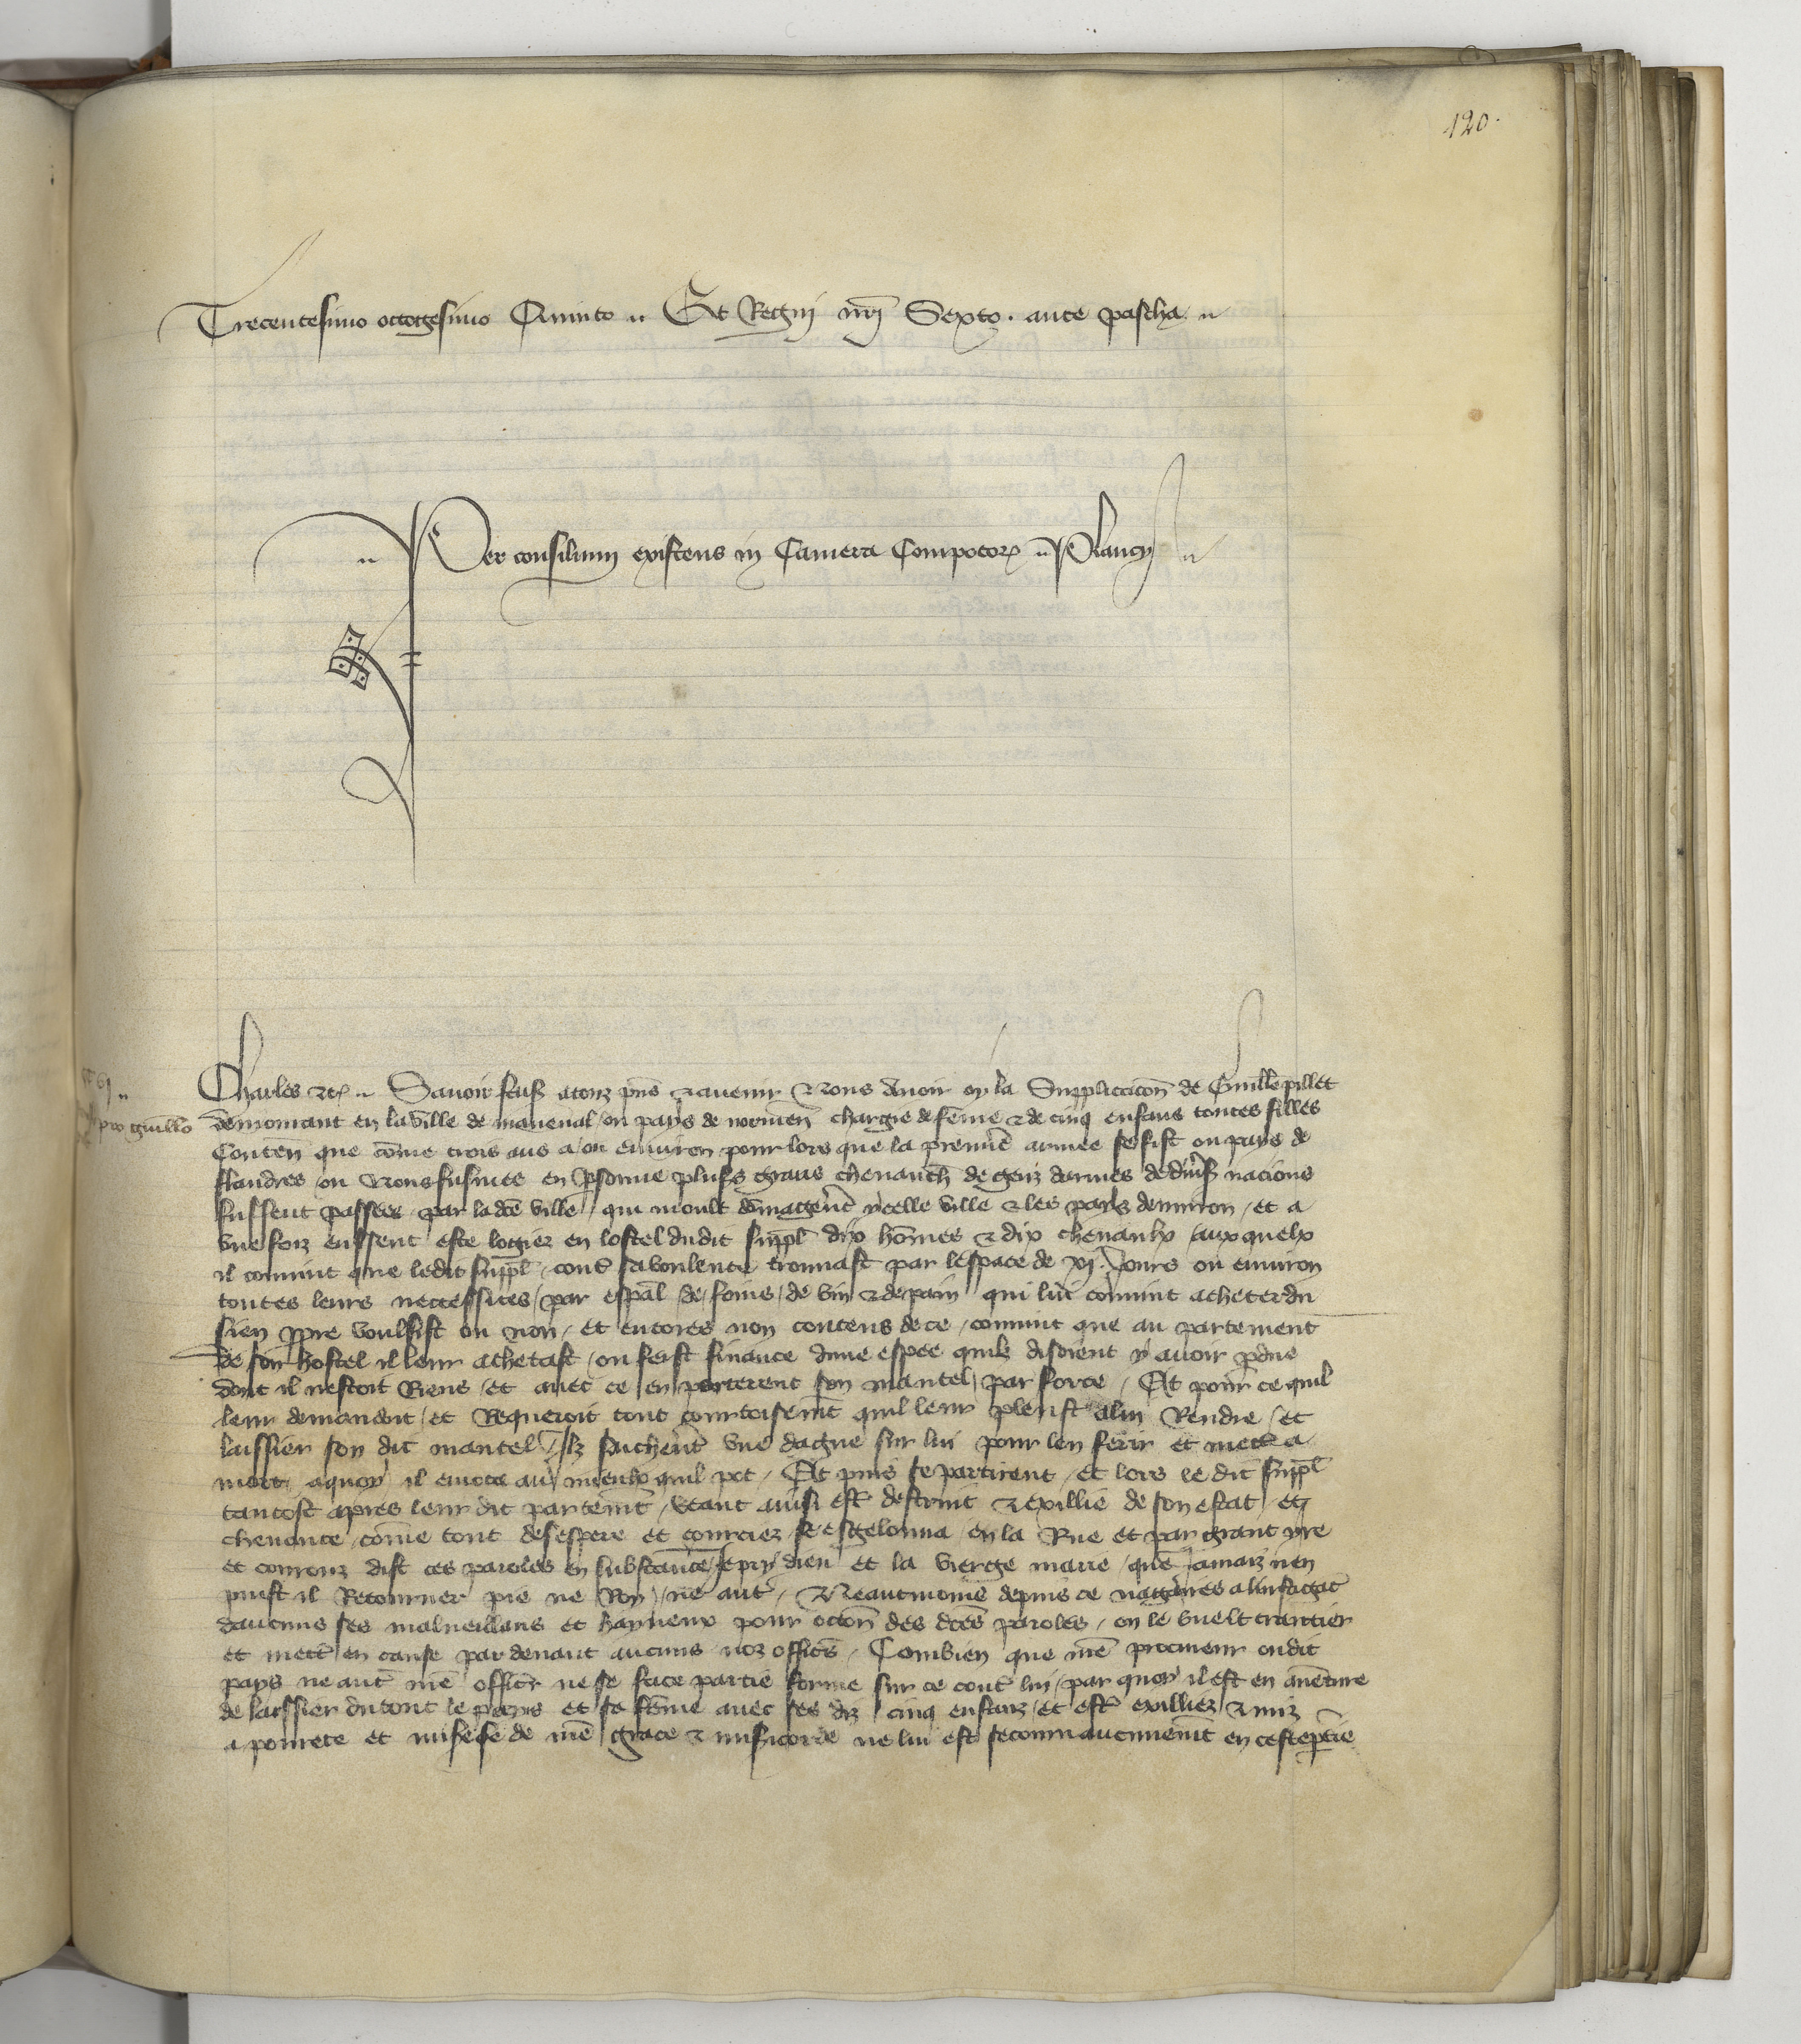 120.
Trecentesimo octogesimo Quinto .. Et Regni nrī Sexto . ante pascha ..
Per consilium existens in Camera Compotoꝝ .. Plancy ..
Charles etc .. Savoir faisz a touz pn̄s et avenir Nous avoir oy la Supplicacōn de Guill̄e pillet
pro guillo
demourant en la ville de maneval ou pays de normen̄ chargie de fēme et de cinq enfans toutes filles
Conten̄ que cōme trois ans a ou environ pour lors que la premiēr armee se fist ou pays de
flandres ou Nous fusmes en ꝑsonne plusꝭ grans chevauch̄ de genz darmes de divꝭs nacions
fussent passees par la dc̄e ville / qui moult dōmagerēnt ycelle ville et les pays denviron / et a
une foiz eussent este logiez en lostel dudit suppl̄ dix hōmes et dix chevaulx / aux quelx
il convint que ledit suppl̄ / contr̄ sa voulente trouvast par lespace de xj. Jours ou environ
toutes leurs neccessites / par esp̄al / de / foins / de vin et de pain qui lui convint acheter du
sien ꝓpre voulsist ou non / et encores non contens de ce / convint que au partement
de son hostel il leur achetast / ou feist finance dune espee quilz disoient y avoir ꝑdue
dont il nestoit Riens / et avec ce en porterent son mantel / par force / Et pour ce quil
leur demandoit / et Requeroit tout courtoisemēt quil leur pleust a lui Rendre / et
laissier son dit mantel / Ilz sachērent une dague sur lui pour len ferir et mettre a
mort / a quoy il evita au mieulx quil pot / Et puis se partirent / et lors le dit suppl̄
tantost apres leur dit partemēt / veant ainsi estr̄ destruit et exillie de son estat / et
chevance / cōme tout desespere et courciez se esgelonna / en la Rue et par grant yre
et courouz dist ces paroles en substance / Je pry dieu et la vierge marie / que jamaiz nen
puist il Retourner pie ne Roy / ne autr̄ / Neantmoins depuis ce nagaires a linstigac̄
daucuns ses malveillans et hayneux pour occōn des dc̄es paroles / on le vuelt traictier
et mettr̄ en cause par devant aucuns noz offic̄s / Combien que nr̄e procureur oudit
pays ne autr̄ nr̄e offic̄r ne se face partie formee sur ce contr̄ lui / par quoy il est en aventure
de laissier du tout le pays et sa fēme avec ses diz cinq enfanz / et estr̄ exilliez et miz
a povrete et misere se de nr̄e grace et misꝭicorde ne lui est secouru aucunemēt en ceste ꝑtie